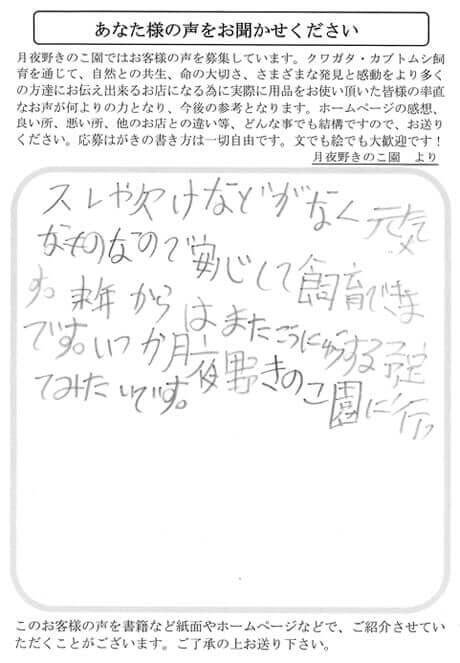 あなた様の声をお聞かせください
月夜野きのこ園ではお客様の声を募集しています。クワガタ・カブトムシ飼
育を通じて、自然との共生、命の大切さ、さまざまな発見と感動をより多く
の方達にお伝え出来るお店になる為に実際に用品をお使い頂いた皆様の率直
なお声が何よりの力となり、今後の参考となります。ホームページの感想、
良い所、悪い所、他のお店との違い等、どんな事でも結構ですので、お送り
ください。応募はがきの書き方は一切自由です。文でも絵でも大歓迎です！
月夜野きのこ園 より
スレや欠けなどがなく元気
なものなので安心して飼育できま
す。来年からはまたこうにゅうする予定
です。いつか月夜野きのこ園に行っ
てみたいです。
このお客様の声を書籍など紙面やホームページなどで、ご紹介させてい
ただくことがございます。ご了承の上お送り下さい。